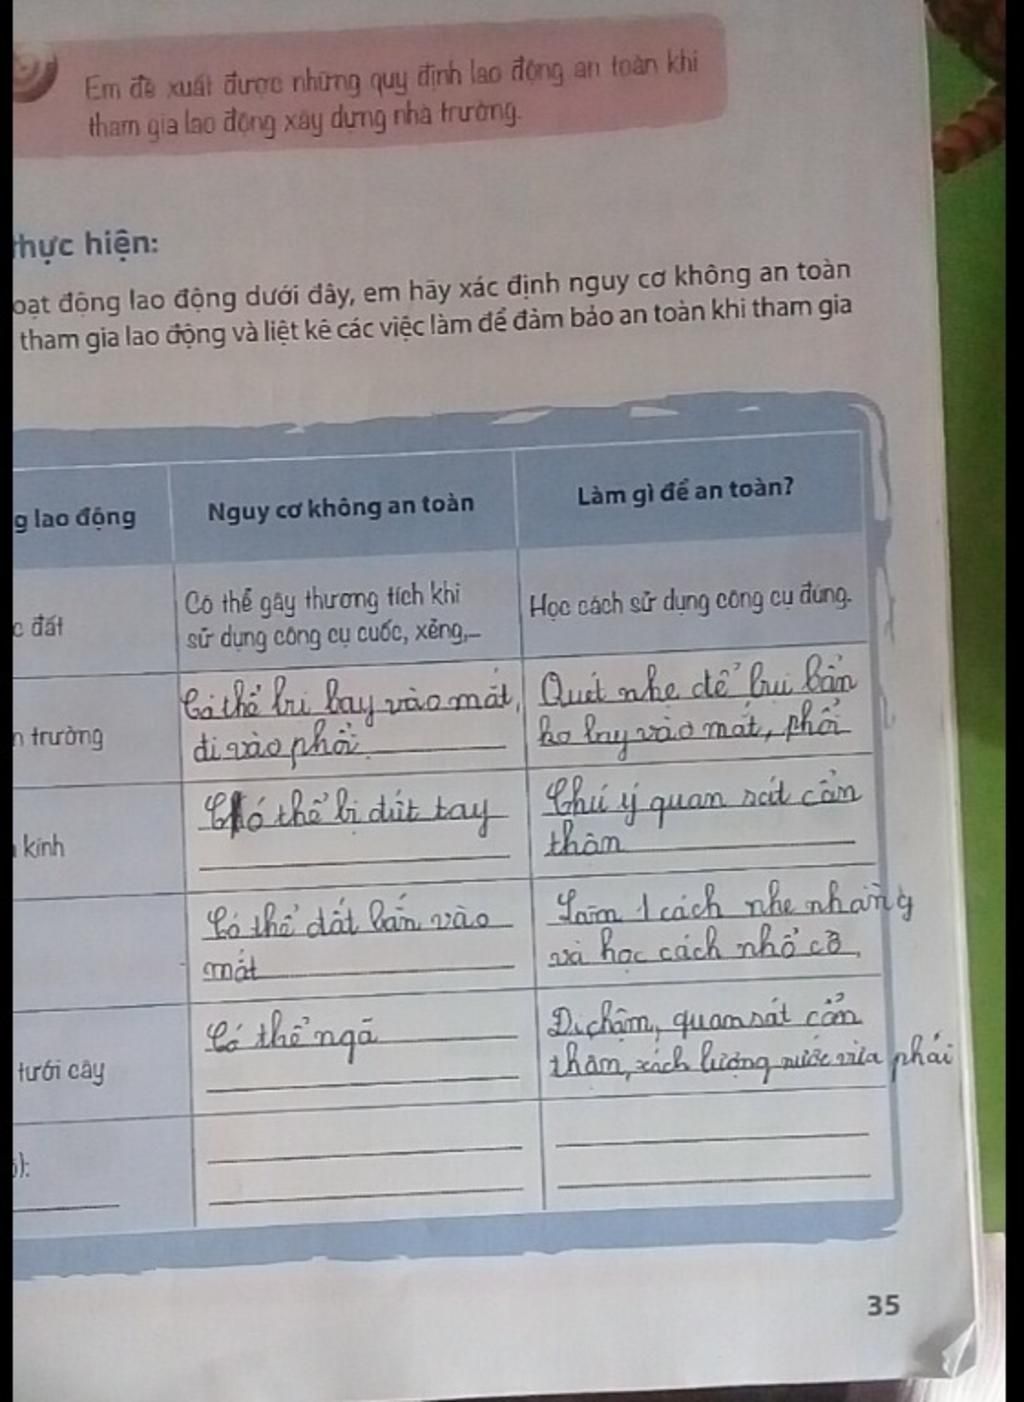 Em đề xuất được những quy định lao động an toàn khi
tham gia lao động xây dựng nhà trường.
thực hiện:
oạt động lao động dưới đây, em hãy xác định nguy cơ không an toàn
tham gia lao động và liệt kê các việc làm để đảm bảo an toàn khi tham gia
g lao động
Nguy cơ không an toàn
Làm gì để an toàn?
c đất
Có thể gây thương tích khi
sử dụng công cụ cuốc, xẻng,...
Học cách sử dụng công cụ đúng.
n trường
Có thể bụi bay vào mắt,
đi vào phổi
Quét nhẹ để bụi bẩn
ko bay vào mắt, phổi
kính
Có thể bị đứt tay
Chú ý quan sát cẩn
thận
Có thể đất bắn vào
mắt
Làm 1 cách nhẹ nhàng
và học cách nhổ cỏ.
tưới cây
Có thể ngã
Đi chậm, quan sát cẩn
thận, xách lượng nước vừa phải
):
35